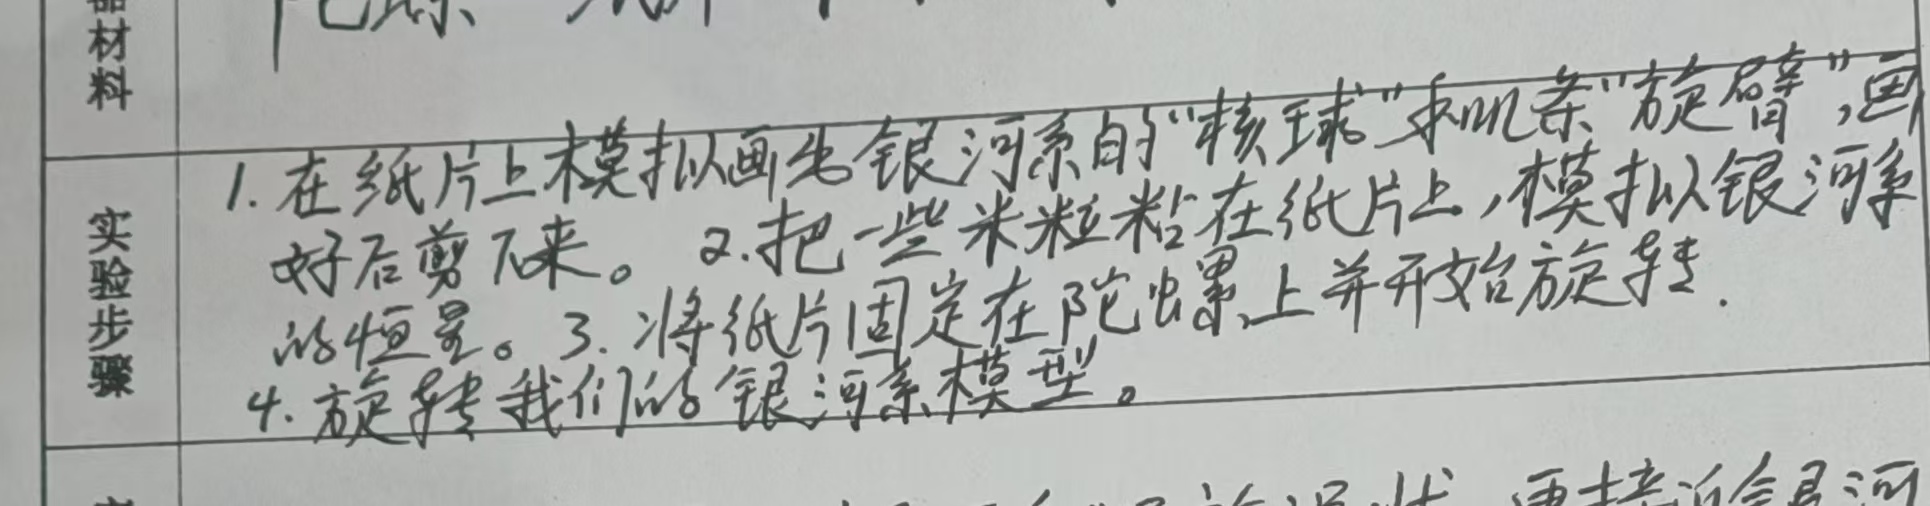 材料
陀螺
实验步骤
1. 在纸片上模拟画出银河系的“核球”和几条“旋臂”，画
好后剪下来。 2. 把一些米粒粘在纸片上，模拟银河系
的恒星。3. 将纸片固定在陀螺上并开始旋转.
4. 旋转我们的银河系模型。
更接近银河